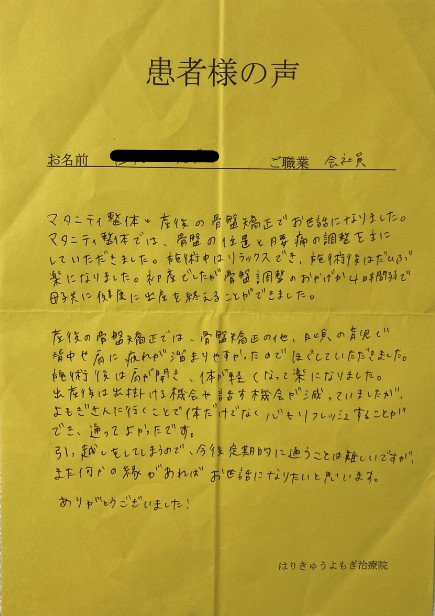 患者様の声
お名前
ご職業 会社員
マタニティ整体と産後の骨盤矯正でお世話になりました。
マタニティ整体では、骨盤の位置と腰痛の調整を主に
していただきました。施術中はリラックスでき、施術後はだいぶ
楽になりました。初産でしたが骨盤調整のおかげか4時間弱で
母子共に健康に出産を終えることができました。
産後の骨盤矯正では、骨盤矯正の他、日頃の育児で
背中や肩に疲れが溜まりやすかったのでほぐしていただきました。
施術後は肩が開き、体が軽くなって楽になりました。
出産後は出掛ける機会や話す機会が減っていましたが、
よもぎさんに行くことで体だけでなく心もリフレッシュすることが
でき、通ってよかったです。
引っ越しをしてしまうので、今後定期的に通うことは難しいですが、
また何かの縁があればお世話になりたいと思います。
ありがとうございました!
はりきゅうよもぎ治療院